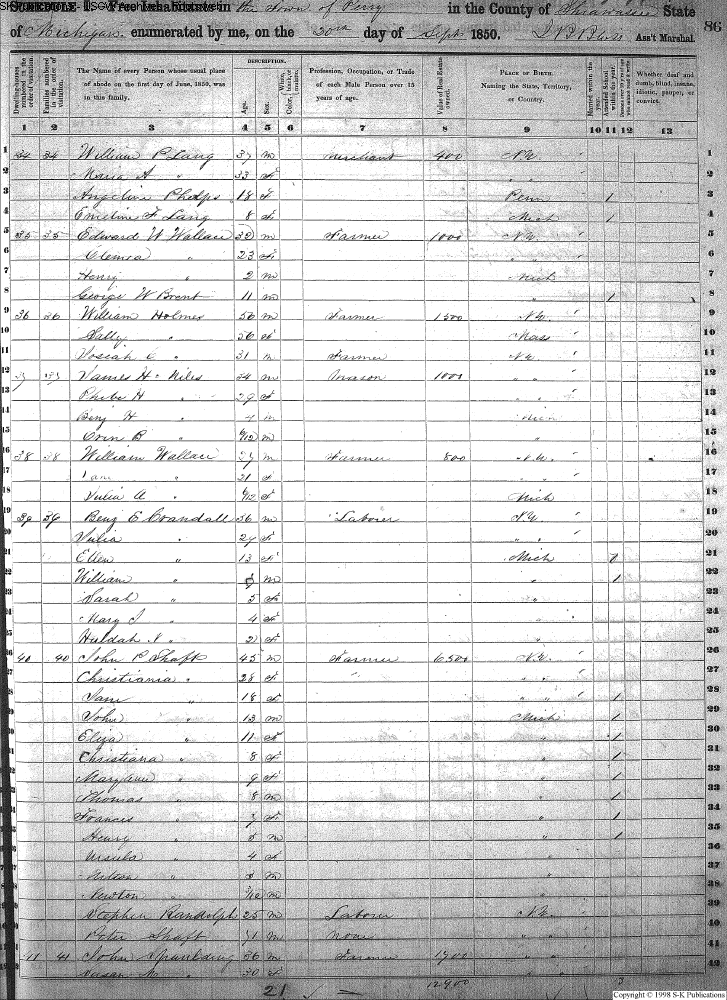 SCHEDULE I. Free Inhabitants in the Town of Perry in the County of Shiawassee State
of Michigan enumerated by me, on the 20th day of Sept 1850. Ass't Marshal. 86
Dwelling-houses numbered in the order of visitation.
Families numbered in the order of visitation.
The Name of every Person whose usual place of abode on the first day of June, 1850, was in this family.
DESCRIPTION.
Age.
Sex.
Color, White, black, or mulatto.
Profession, Occupation, or Trade of each Male Person over 15 years of age.
Value of Real Estate owned.
PLACE OF BIRTH. Naming the State, Territory, or Country.
Married within the year.
Attended School within the year.
Whether deaf and dumb, blind, insane, idiotic, pauper, or convict.
1 2 3 4 5 6 7 8 9 10 11 12 13
1 34 34 William P Lang 37 m Merchant 400 N.Y. 1
2 Maria A " 33 f " " 2
3 Angeline Phelps 18 f Penn 1 3
4 Emeline F Lang 8 f Mich 1 4
5 35 35 Edward W Wallace 32 m Farmer 1000 N.Y. 5
6 " 23 f " " 6
7 Henry " 2 m Mich 7
8 George W Brent 11 m " 1 8
9 36 36 William Holmes 56 m Farmer 1500 N.Y. 9
10 Sally " 56 f Mass 10
11 Josiah C " 31 m Farmer N.Y. 11
12 37 37 James H Niles 34 m Mason 1000 " " 12
13 Phebe H " 29 f " " 13
14 Benj H " 4 m Mich 14
15 Orin B " 6/12 m " 15
16 38 38 William Wallace 27 m Farmer 800 N.Y. 16
17 Jane " 21 f 17
18 Julia A " 6/12 f Mich 18
19 39 39 Benj E Crandall 36 m Laborer N.Y. 19
20 Julia " 29 f " " 20
21 Ellen " 13 f Mich 1 21
22 William " m " 1 22
23 Sarah " 5 f " 23
24 Mary J " 4 f " 24
25 Huldah N " 2 f " 25
40 40 John P Shaft 45 m Farmer 6500 N.Y. 26
Christiania " 28 f " " 27
Jane " 18 f " " 1 28
John " 13 m Mich 1 29
Eliza " 11 f " 1 30
Christiana " 8 f " 1 31
Mary Ann " 9 f " 1 32
Thomas " 8 m " 1 33
Frances " 7 f " 1 34
Henry " 5 m " 1 35
Ursula " 4 f " 36
" m " 37
Newton " m " 38
Stephen Randolph 25 m Laborer N.Y. 39
Peter Shaft 71 m None " 40
41 41 John Spaulding 36 m Farmer 1700 " " 41
Susan " 30 f " " 42
21 12900
Copyright © 1998 S-K Publications